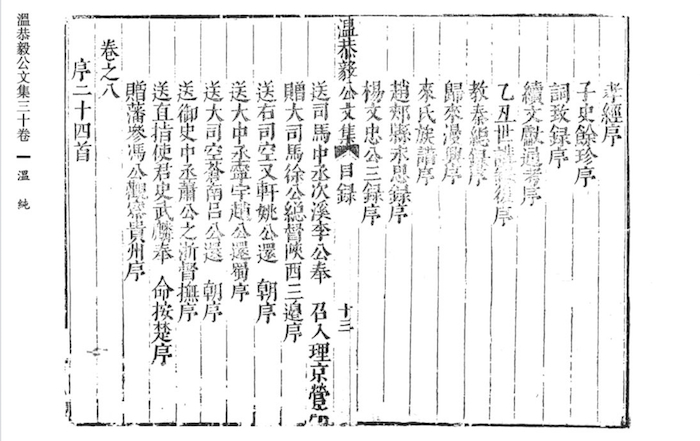 孝經序
子史餘珍序
詞致録序
續文獻通考序
乙丑世講録後序
教秦總録序
歸來漫興序
來氏族譜序
趙郟縣永思録序
楊文忠公三録序
溫恭毅公文集 目録 十三
送司馬中丞次溪李公奉 召入理京營
贈大司馬徐公總督陝西三邊序
送右司空文軒姚公還 朝序
送大中丞寧宇趙公還蜀序
送大司空蒼南呂公還 朝序
送御史中丞蕭公之浙督撫序
送直指使君史武麟奉 命按楚序
贈藩參馮公觀察貴州序
卷之八
序二十四首
溫恭毅公文集三十卷 一 溫 純